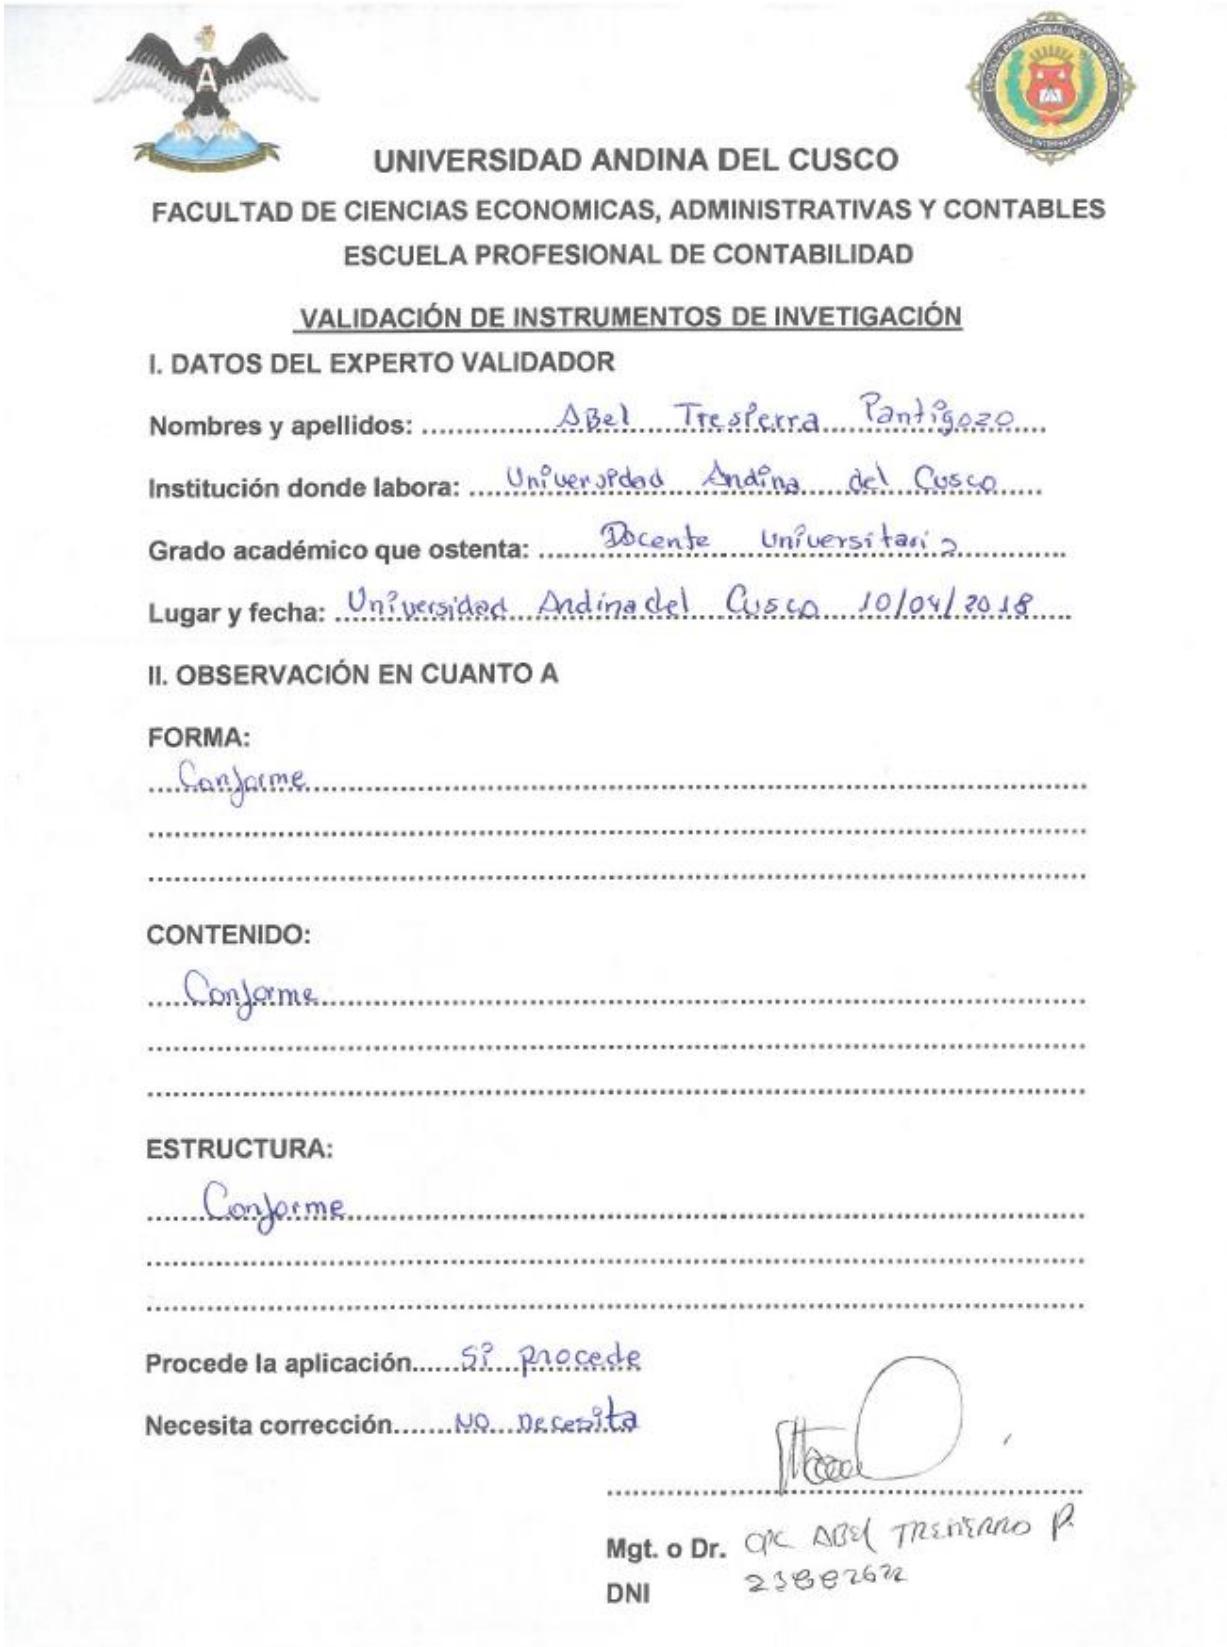 A
UNIVERSIDAD ANDINA DEL CUSCO
FACULTAD DE CIENCIAS ECONOMICAS, ADMINISTRATIVAS Y CONTABLES
ESCUELA PROFESIONAL DE CONTABILIDAD
VALIDACIÓN DE INSTRUMENTOS DE INVETIGACIÓN
I. DATOS DEL EXPERTO VALIDADOR
Nombres y apellidos: ABel Tresierra Pantigozo
Institución donde labora: Universidad Andina del Cusco
Grado académico que ostenta: Docente Universitario
Lugar y fecha: Universidad Andina del Cusco 10/04/2018
II. OBSERVACIÓN EN CUANTO A
FORMA:
Conforme
CONTENIDO:
Conforme
ESTRUCTURA:
Conforme
Procede la aplicación...... Si procede
Necesita corrección....... NO necesita
Mgt. o Dr. CPC ABEL P.
DNI